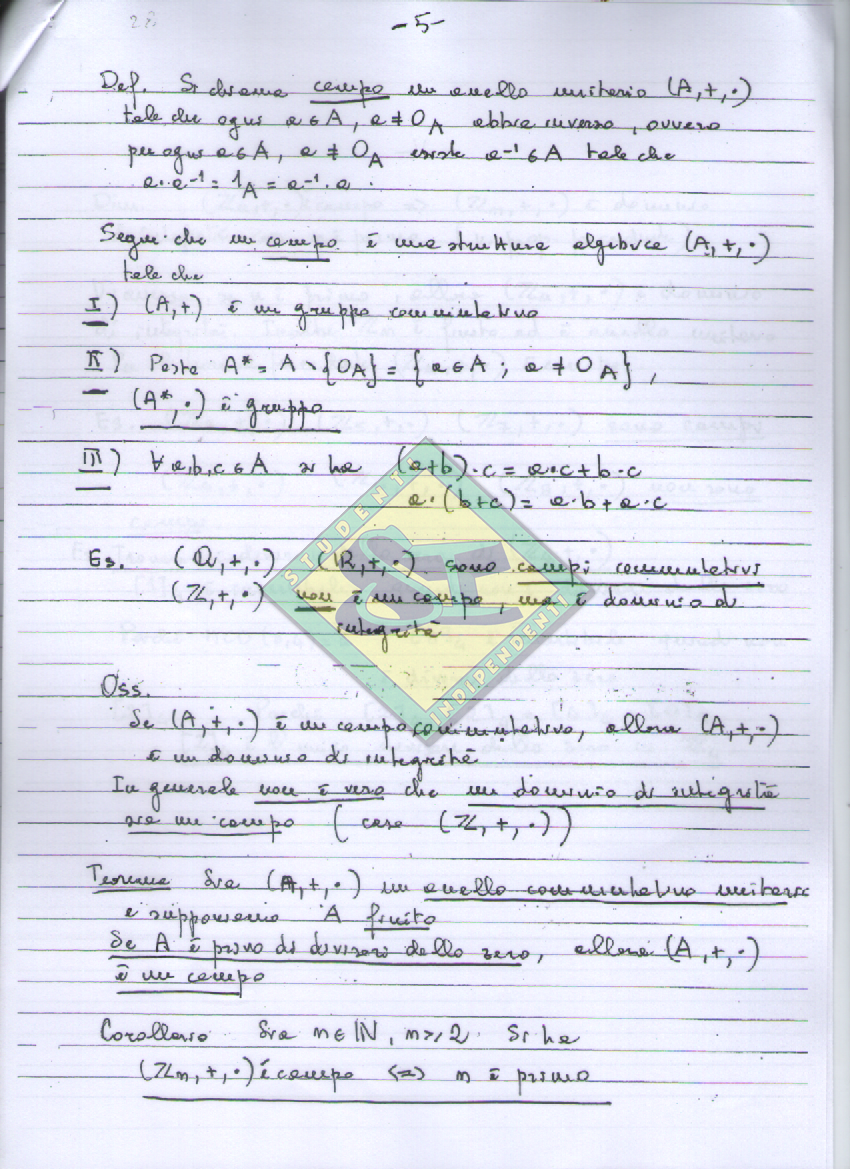 28
-5-
Def. Si chiama campo un anello unitario (A,+,·)
tale che ogni a ∈ A, a ≠ 0_A abbia inverso, ovvero
per ogni a ∈ A, a ≠ 0_A esiste a⁻¹ ∈ A tale che
a·a⁻¹ = 1_A = a⁻¹·a.
Segue che un campo è una struttura algebrica (A,+,·)
tale che
I) (A,+) è un gruppo commutativo
II) Posto A* = A \ {0_A} = {a ∈ A ; a ≠ 0_A},
(A*,·) è gruppo
III) ∀ a,b,c ∈ A si ha (a+b)·c = a·c+b·c
a·(b+c) = a·b+a·c
Es. (Q,+,·) (R,+,·) sono campi commutativi
(Z,+,·) non è un campo, ma è dominio di
integrità
STUDENTI
SI
INDIPENDENTI
Oss.
Se (A,+,·) è un campo commutativo, allora (A,+,·)
è un dominio di integrità
In generale non è vero che un dominio di integrità
sia un campo (caso (Z,+,·))
Teorema Sia (A,+,·) un anello commutativo unitario
e supponiamo A finito
Se A è privo di divisori dello zero, allora (A,+,·)
è un campo
Corollario Sia n ∈ IN, n ≥ 2. Si ha
(Zn,+,·) è campo <=> n è primo